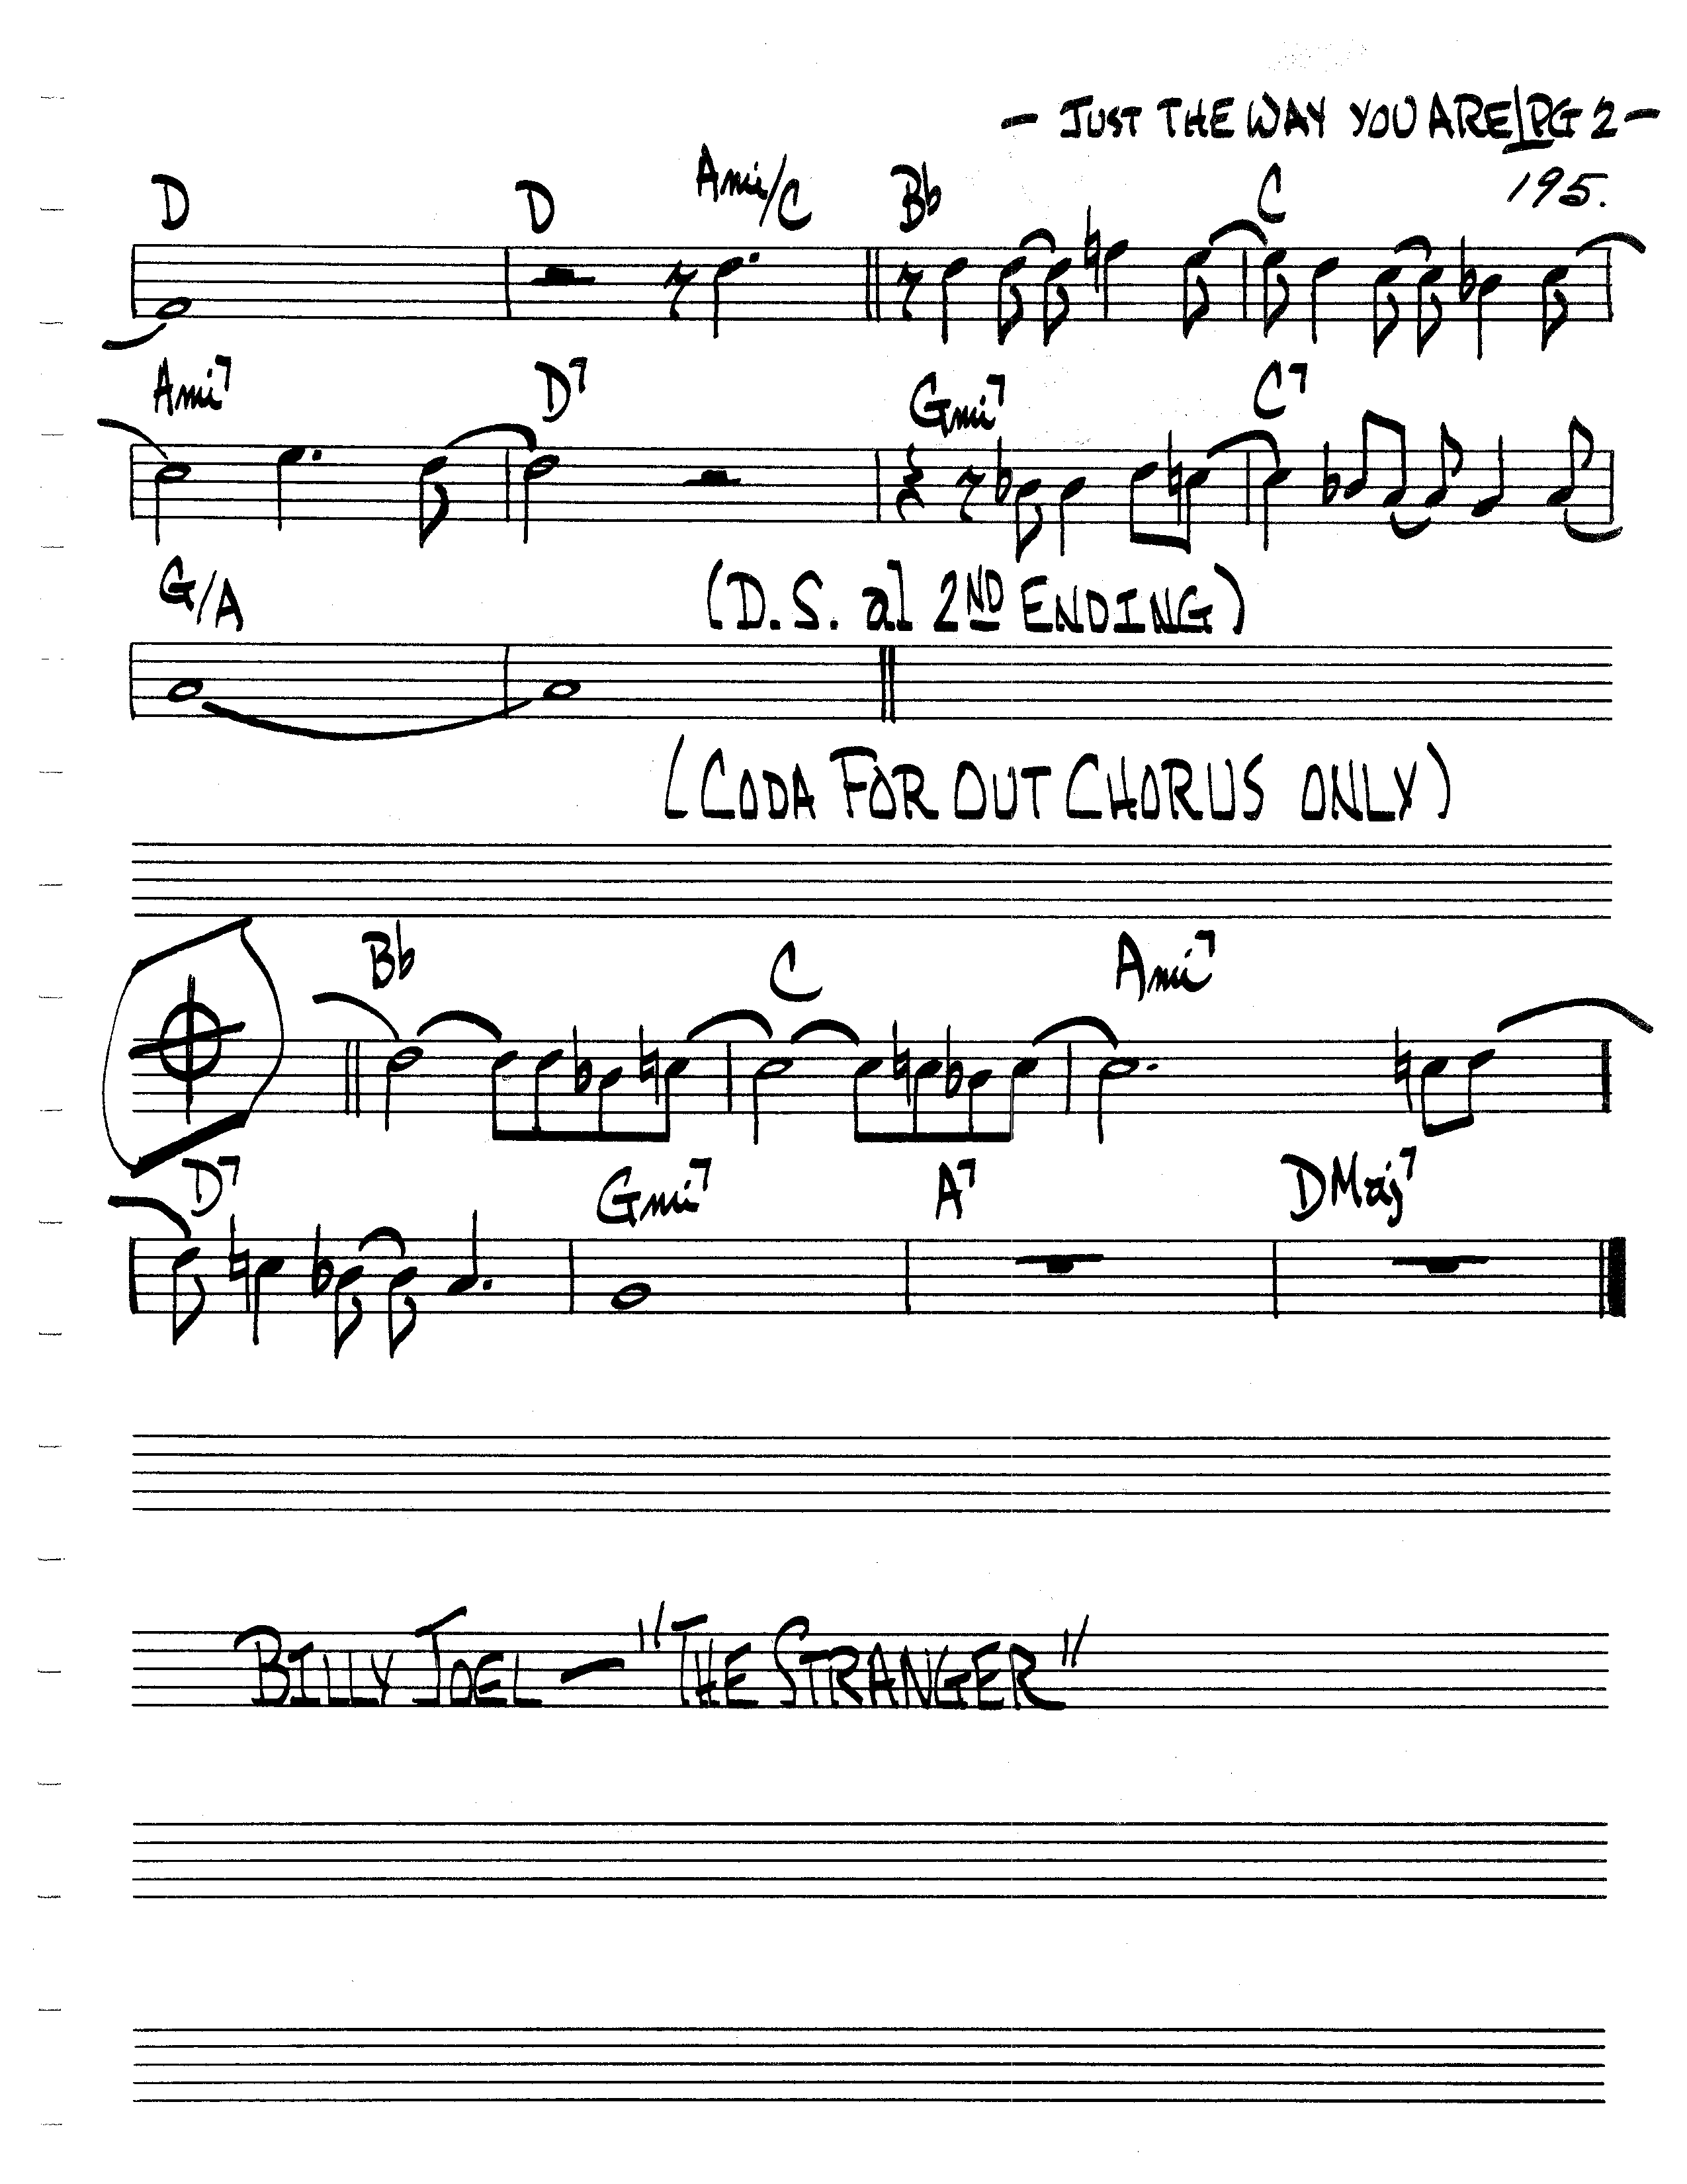 - JUST THE WAY YOU ARE/PG 2 -
195.
D D Ami/C Bb C
Ami7 D7 Gmi7 C7
G/A (D.S. al 2ND ENDING)
(CODA FOR OUT CHORUS ONLY)
Bb C Ami7
D7 Gmi7 A7 DMaj7
BILLY JOEL — "THE STRANGER"